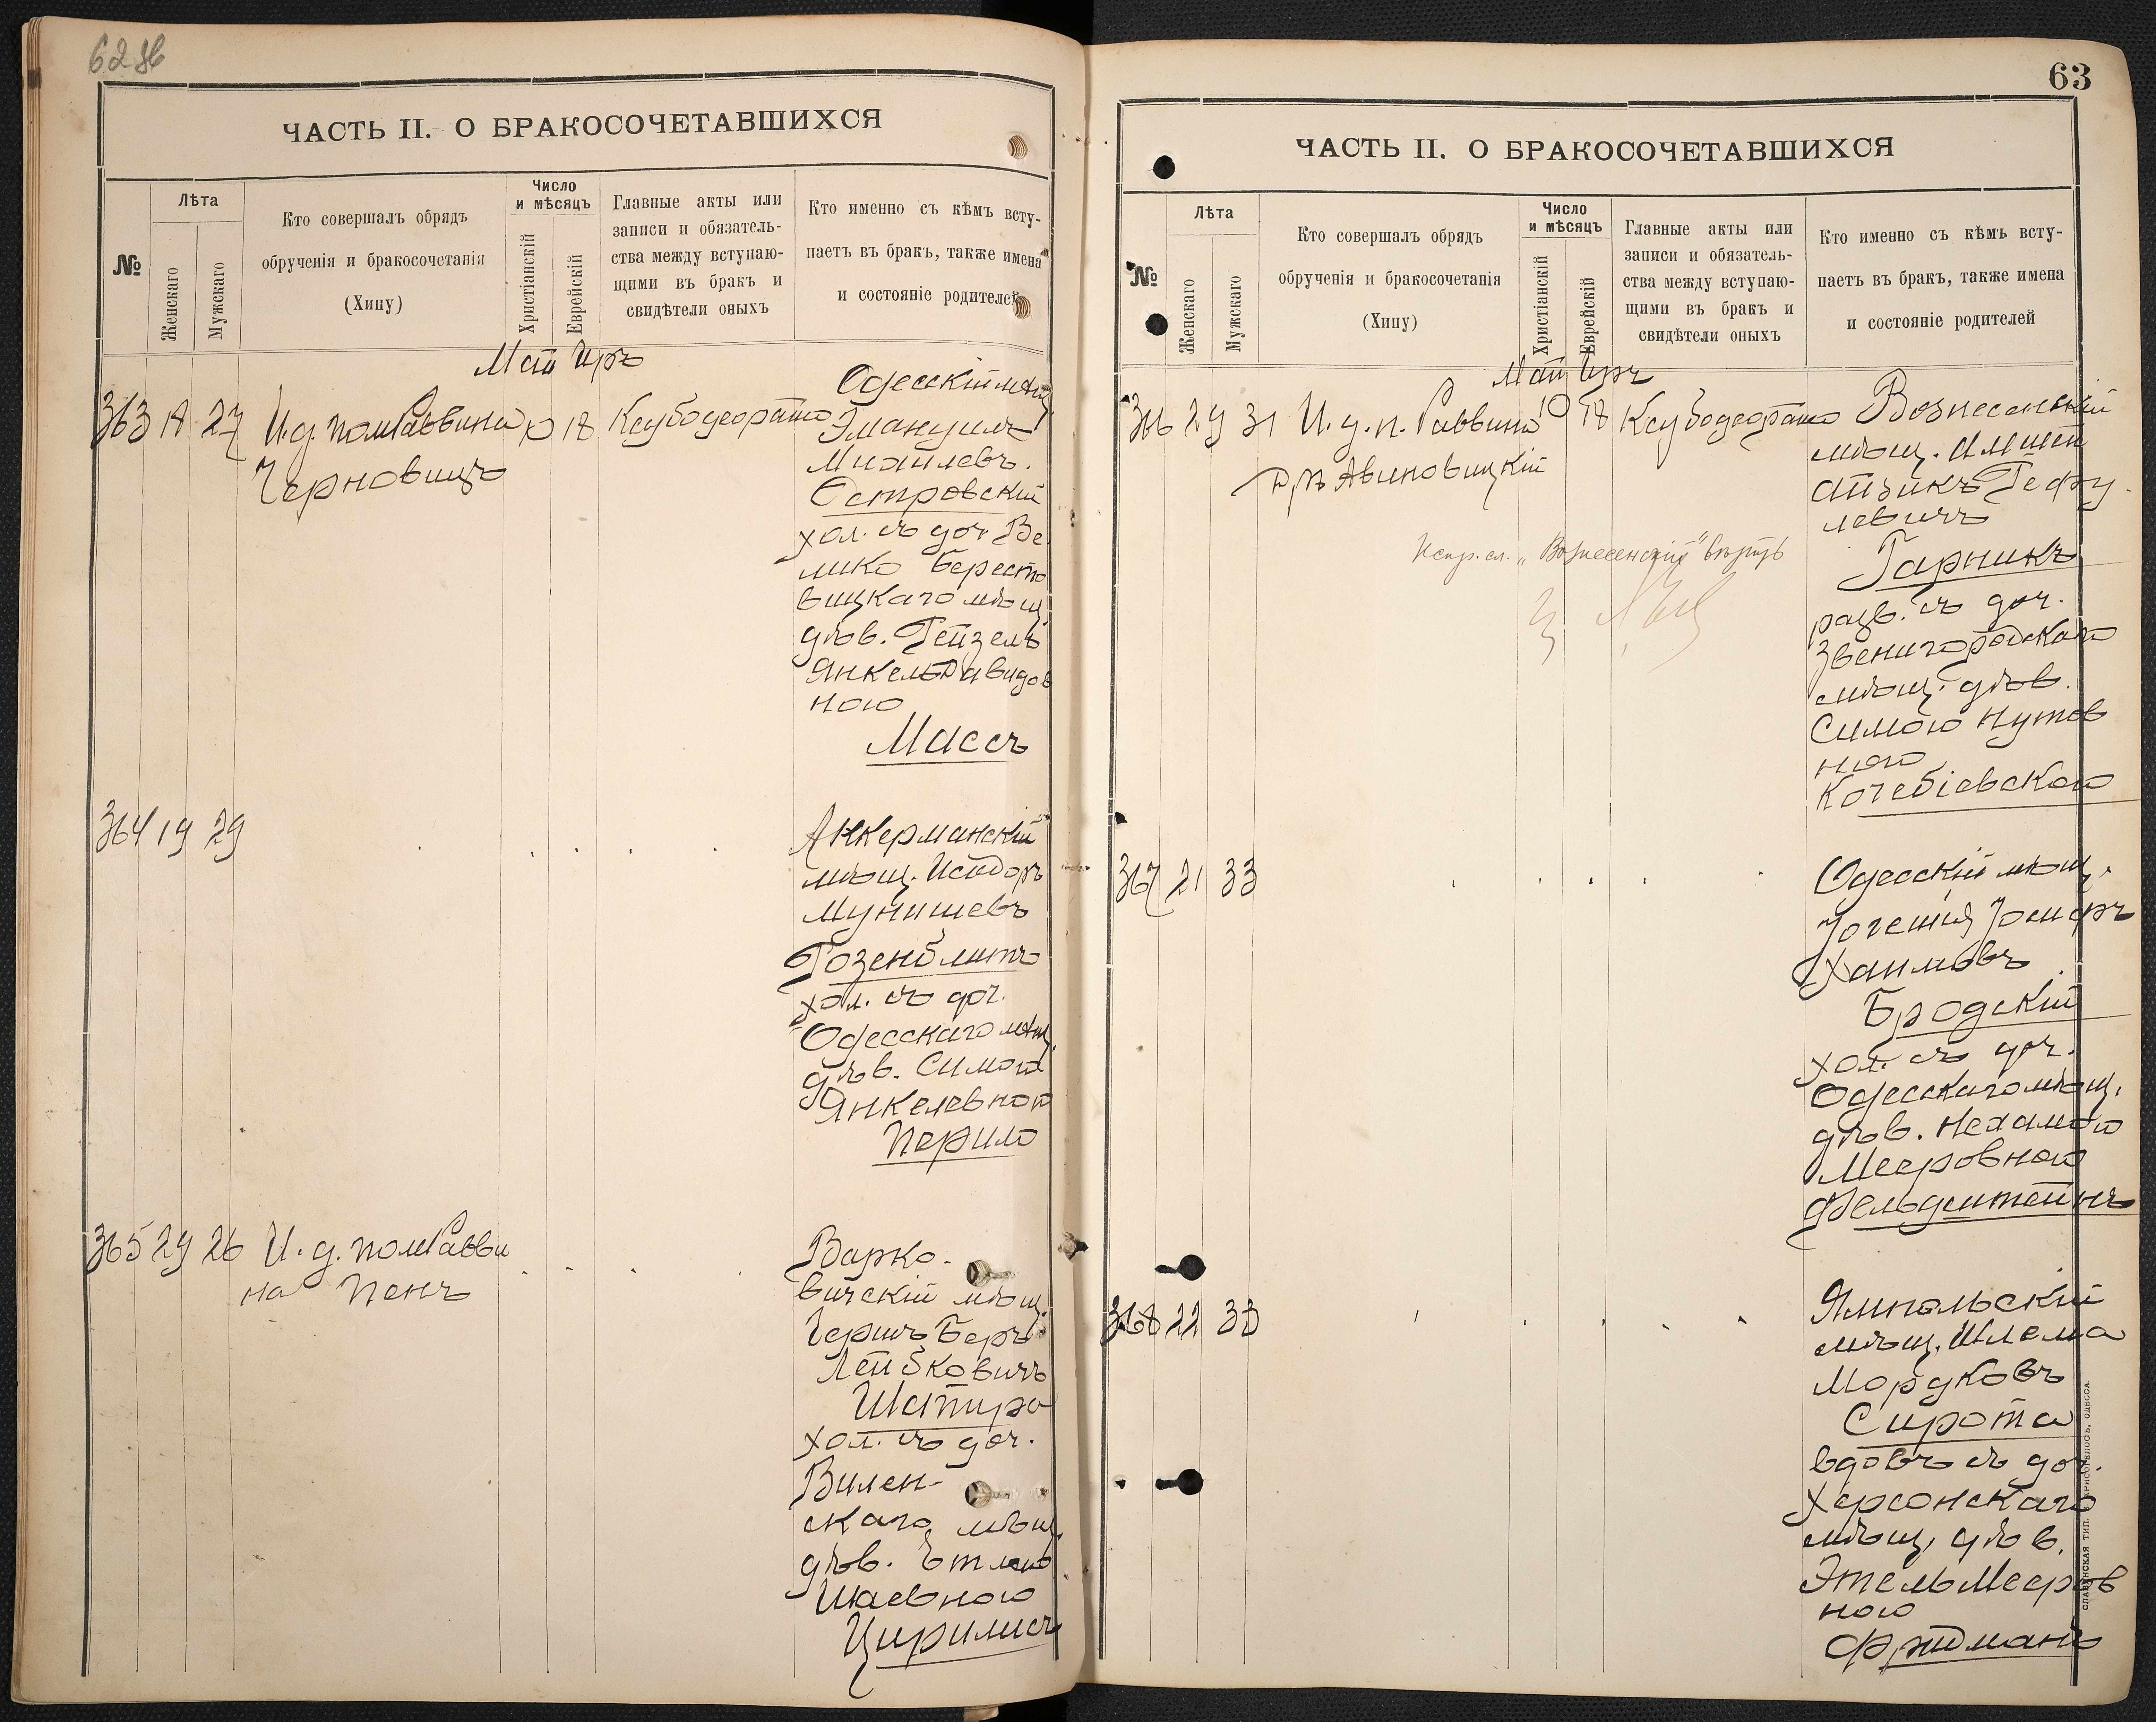 62 об
ЧАСТЬ II. О БРАКОСОЧЕТАВШИХСЯ
№
Лѣта
Женскаго
Мужскаго
Кто совершалъ обрядъ
обрученія и бракосочетанія
(Хипу)
Число
и мѣсяцъ
Христіанскій
Еврейскій
Главные акты или
записи и обязатель-
ства между вступаю-
щими въ бракъ и
свидѣтели оныхъ
Кто именно съ кѣмъ всту-
паетъ въ бракъ, также имена
и состояніе родителей
Май Иръ
363 18 27 И.д. пом Раввина 10 18 Ксубодеорато
Черновицъ
Одесскій мѣщ.
Эмануилъ
Михайлевъ
Островскій
хол. съ доч. Ве
лико Бересто
вицкаго мѣщ.
дѣв. Рейзель
Янкель Давидов
ною
Массъ
364 19 29
Аккерманскій
мѣщ. Исидоръ
Мунишевъ
Розенблитъ
хол. съ доч.
Одесскаго мѣщ.
дѣв. Симою
Янкелевною
Перило
365 29 26 И. д. пом Равви
на Пенъ
Варко-
вичскій мѣщ.
Гершъ Беръ
Лейбковичъ
Шапира
хол. съ доч.
Вилен-
скаго мѣщ.
дѣв. Этлею
Шаевною
Цирилисъ
63
ЧАСТЬ II. О БРАКОСОЧЕТАВШИХСЯ
№
Лѣта
Женскаго
Мужскаго
Кто совершалъ обрядъ
обрученія и бракосочетанія
(Хипу)
Число
и мѣсяцъ
Христіанскій
Еврейскій
Главные акты или
записи и обязатель-
ства между вступаю-
щими въ бракъ и
свидѣтели оныхъ
Кто именно съ кѣмъ всту-
паетъ въ бракъ, также имена
и состояніе родителей
Май Иръ
366 29 31 И. д. п. Раввина 10 18 Ксубодеорато
Д-ръ Авиновицкій
Испр. сл. „Вознесенскій" вѣрить
Вознесенскій
мѣщ.
Айзикъ
левичъ
Гарникъ
разв. съ доч.
Звенигородскаго
мѣщ. дѣв.
Симою Нутов
ною
Кочебіевскою
367 21 33
Одесскій мѣщ.
Хаимовъ
Бродскій
хол. съ доч.
Одесскаго мѣщ.
дѣв. Нехамою
Мееровною
Фельдштейнъ
368 22 33
Ямпольскій
мѣщ. Шлема
Мордковъ
Сирота
вдовъ съ доч.
Херсонскаго
мѣщ. дѣв.
Этель Мееров
ною
Фридманъ
СЛАВЯНСКАЯ ТИП. Е. ХРИСОГЕЛОСЪ, ОДЕССА.